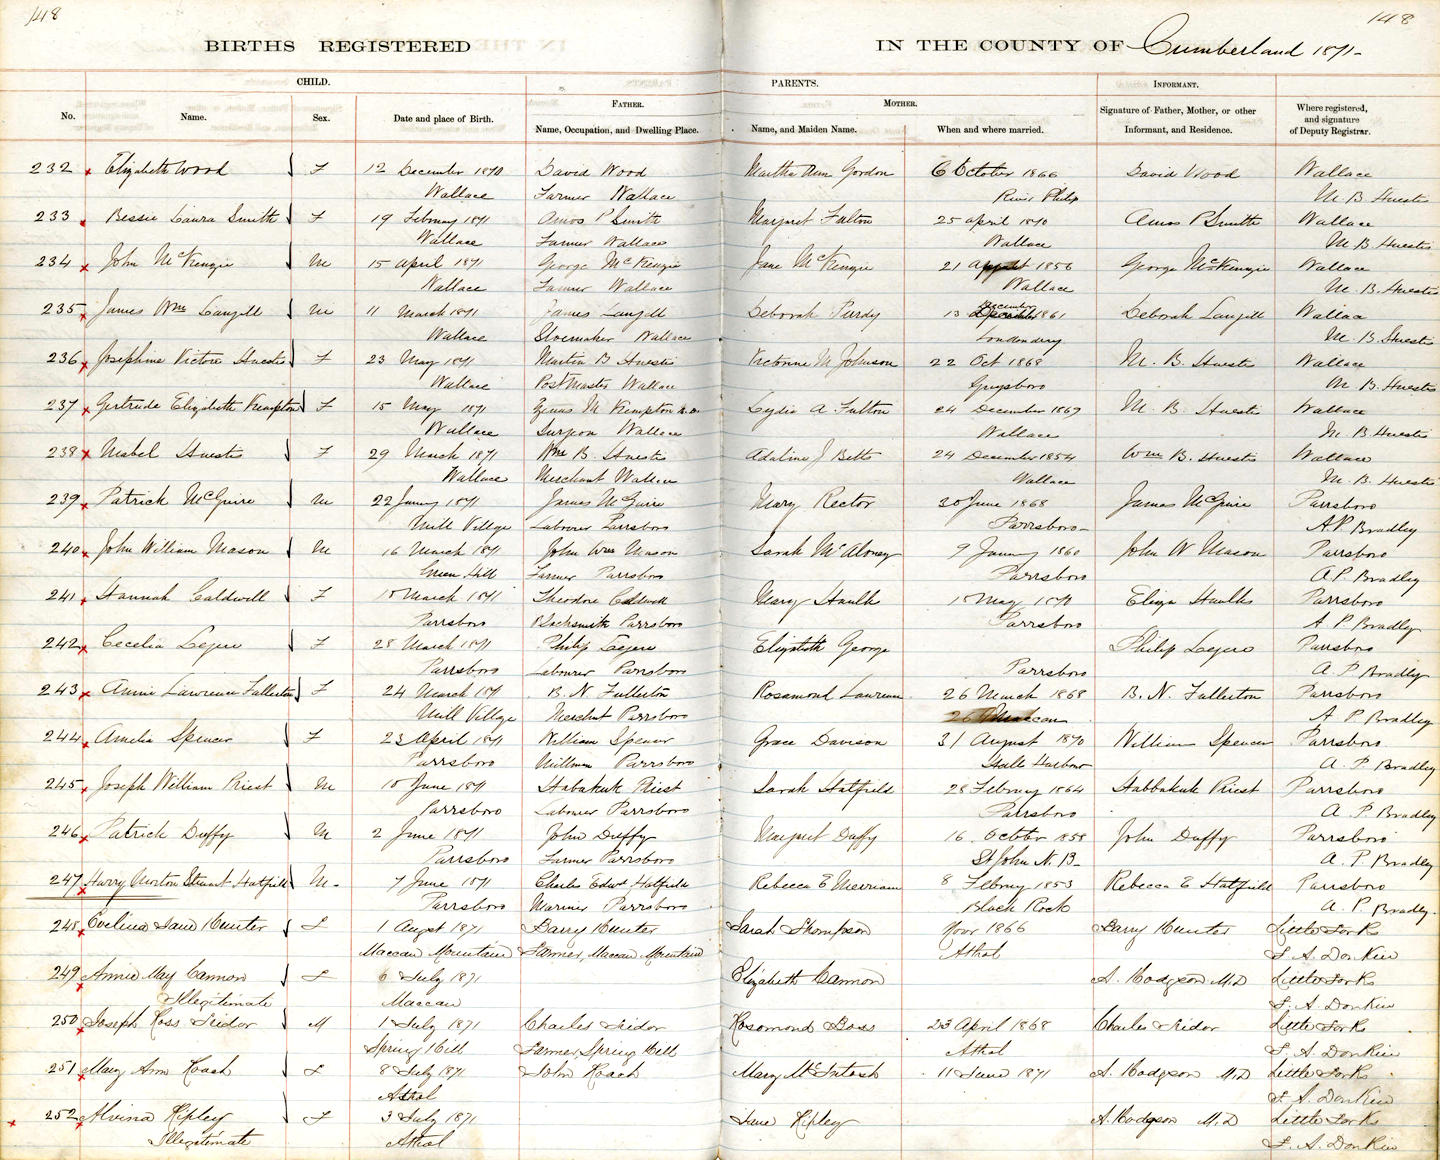 148 148
BIRTHS REGISTERED IN THE COUNTY OF Cumberland 1871-
CHILD. PARENTS. INFORMANT.
No. Name. Sex. Date and place of Birth. FATHER. Name, Occupation, and Dwelling Place. MOTHER. Name, and Maiden Name. When and where married. Signature of Father, Mother, or other Informant, and Residence. Where registered, and signature of Deputy Registrar.
232 Elizabeth Wood F 12 December 1870 David Wood Martha Ann Gordon 6 October 1866 David Wood Wallace
Wallace Farmer Wallace River Philip M B Huestis
233 Bessie Laura Smith F 19 February 1871 Amos P Smith Margaret Fulton 25 April 1870 Amos P Smith Wallace
Wallace Farmer Wallace Wallace M. B. Huestis
234 John McKenzie M 15 April 1871 George McKenzie Jane McKenzie 21 1856 George McKenzie Wallace
Wallace Farmer Wallace Wallace M. B. Huestis
235 James Wm Langill M 11 March 1871 James Langill Deborah Purdy 13 December 1861 Deborah Langill Wallace
Wallace Shoemaker Wallace Londonderry M. B. Huestis
236 Josephine Victore Huestis F 23 May 1871 Martin B Huestis Victorine M Johnson 22 Oct 1868 M. B. Huestis Wallace
Wallace Post Master Wallace Guysboro M B Huestis
237 Gertrude Elizabeth Kempton F 15 May 1871 Zenas M Kempton M.D. Lydia A Fulton 24 December 1867 M. B. Huestis Wallace
Wallace Surgeon Wallace Wallace M. B. Huestis
238 Mabel Huestis F 29 March 1871 Wm B. Huestis Adaline J Betts 24 December 1854 Wm B. Huestis Wallace
Wallace Merchant Wallace Wallace M. B. Huestis
239 Patrick McGuire M 22 January 1871 James McGuire Mary Rector 30 June 1868 James McGuire Parrsboro
Mill Village Labourer Parrsboro Parrsboro- A P. Bradley
240 John William Mason M 16 March 1871 John Wm Mason Sarah McAloney 9 January 1860 John W Mason Parrsboro
Green Hill Farmer Parrsboro Parrsboro A. P. Bradley
241 Hannah Caldwell F 15 March 1871 Theodore Caldwell Mary Haulk 15 May 1870 Eliza Haulks Parrsboro
Parrsboro Blacksmith Parrsboro Parrsboro A P. Bradley
242 Cecelia Legere F 28 March 1871 Philip Legere Elizabeth George Philip Legere Parrsboro
Parrsboro Labourer Parrsboro Parrsboro A. P. Bradley
243 Annie Lawrence Fullerton F 24 March 1871 B. N. Fullerton Rosamond Lawrence 26 March 1868 B. N. Fullerton Parrsboro
Mill Village Merchant Parrsboro 26 Maccan A P. Bradley
244 Amelia Spencer F 23 April 1871 William Spencer Grace Davison 31 August 1870 William Spencer Parrsboro
Parrsboro Millman Parrsboro Halls Harbour A. P. Bradley
245 Joseph William Priest M 10 June 1871 Habakuk Priest Sarah Hatfield 28 February 1864 Habbakuk Priest Parrsboro
Parrsboro Labourer Parrsboro Parrsboro A. P. Bradley
246 Patrick Duffy M 2 June 1871 John Duffy Margaret Duffy 16 October 1858 John Duffy Parrsboro
Parrsboro Farmer Parrsboro St John N. B- A. P. Bradley
247 Harry Morton Stewart Hatfield M- 7 June 1871 Charles Edwd Hatfield Rebecca E Merriam 8 February 1853 Rebecca E Hatfield Parrsboro
Parrsboro Mariner Parrsboro Black Rock A. P. Bradley.
248 Evelina Jane Hunter F 1 August 1871 Barry Hunter Sarah Thompson Novr 1866 Barry Hunter Little Forks
Maccan Mountain Farmer, Maccan Mountain Athol F. A. Donkin
249 Annie May Cannon F 6 July 1871 Elizabeth Cannon A. Hodgson M.D Little Forks
Illegitimate Maccan F. A. Donkin
250 Joseph Ross M 1 July 1871 Charles Rosomond Boss 23 April 1868 Charles Little Forks
Spring Hill Farmer, Spring Hill Athol F. A. Donkin
251 Mary Ann Roach F 8 July 1871 John Roach Mary McIntosh 11 June 1871 A. Hodgson M.D Little Forks
Athol F. A. Donkin
252 Alvina Ripley F 3 July 1871 Jane Ripley A. Hodgson M.D Little Forks
Illegitimate Athol F. A. Donkin